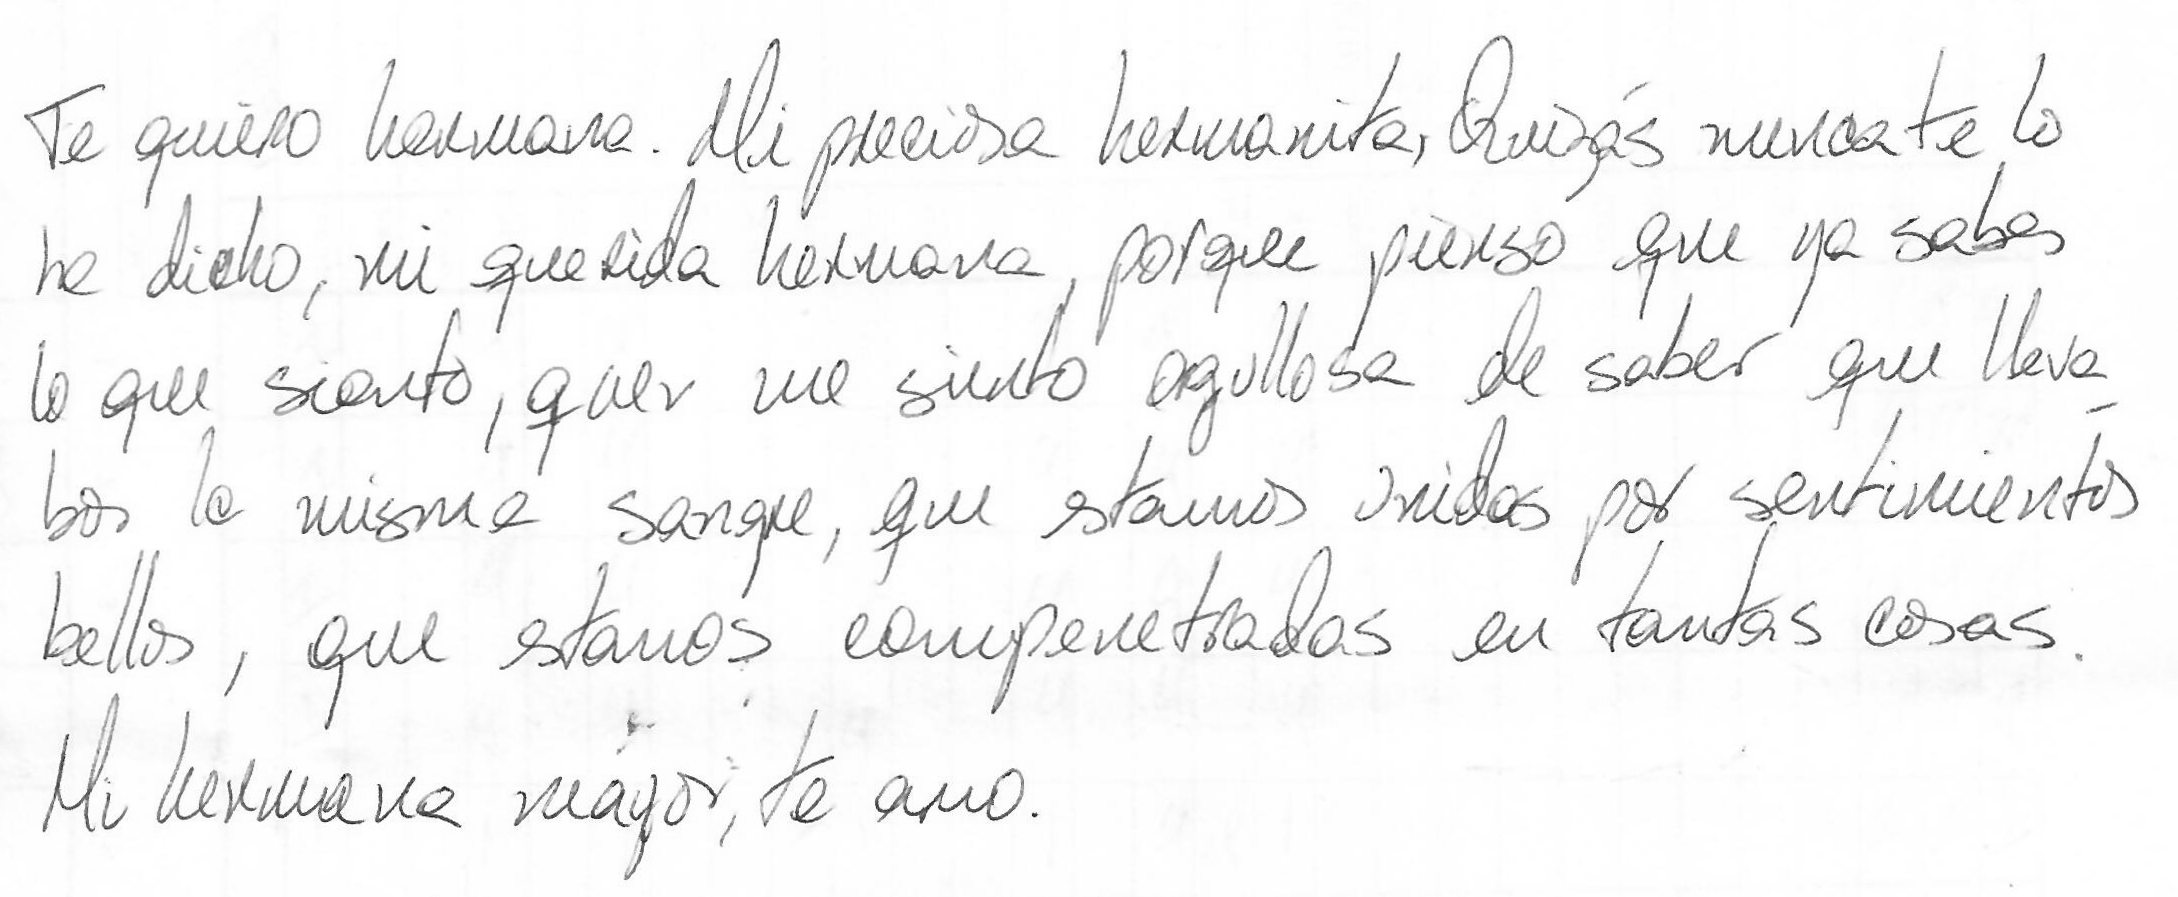 Te quiero hermana. Mi preciosa hermanita, Quizás nunca te lo
he dicho, mi querida hermana, porque pienso que ya sabes
lo que siento, quer me siento orgullosa de saber que lleva_
bos la misma sangre, que estamos unidas por sentimientos
bellos, que estamos compenetradas en tantas cosas.
Mi hermana máyor, te amo.